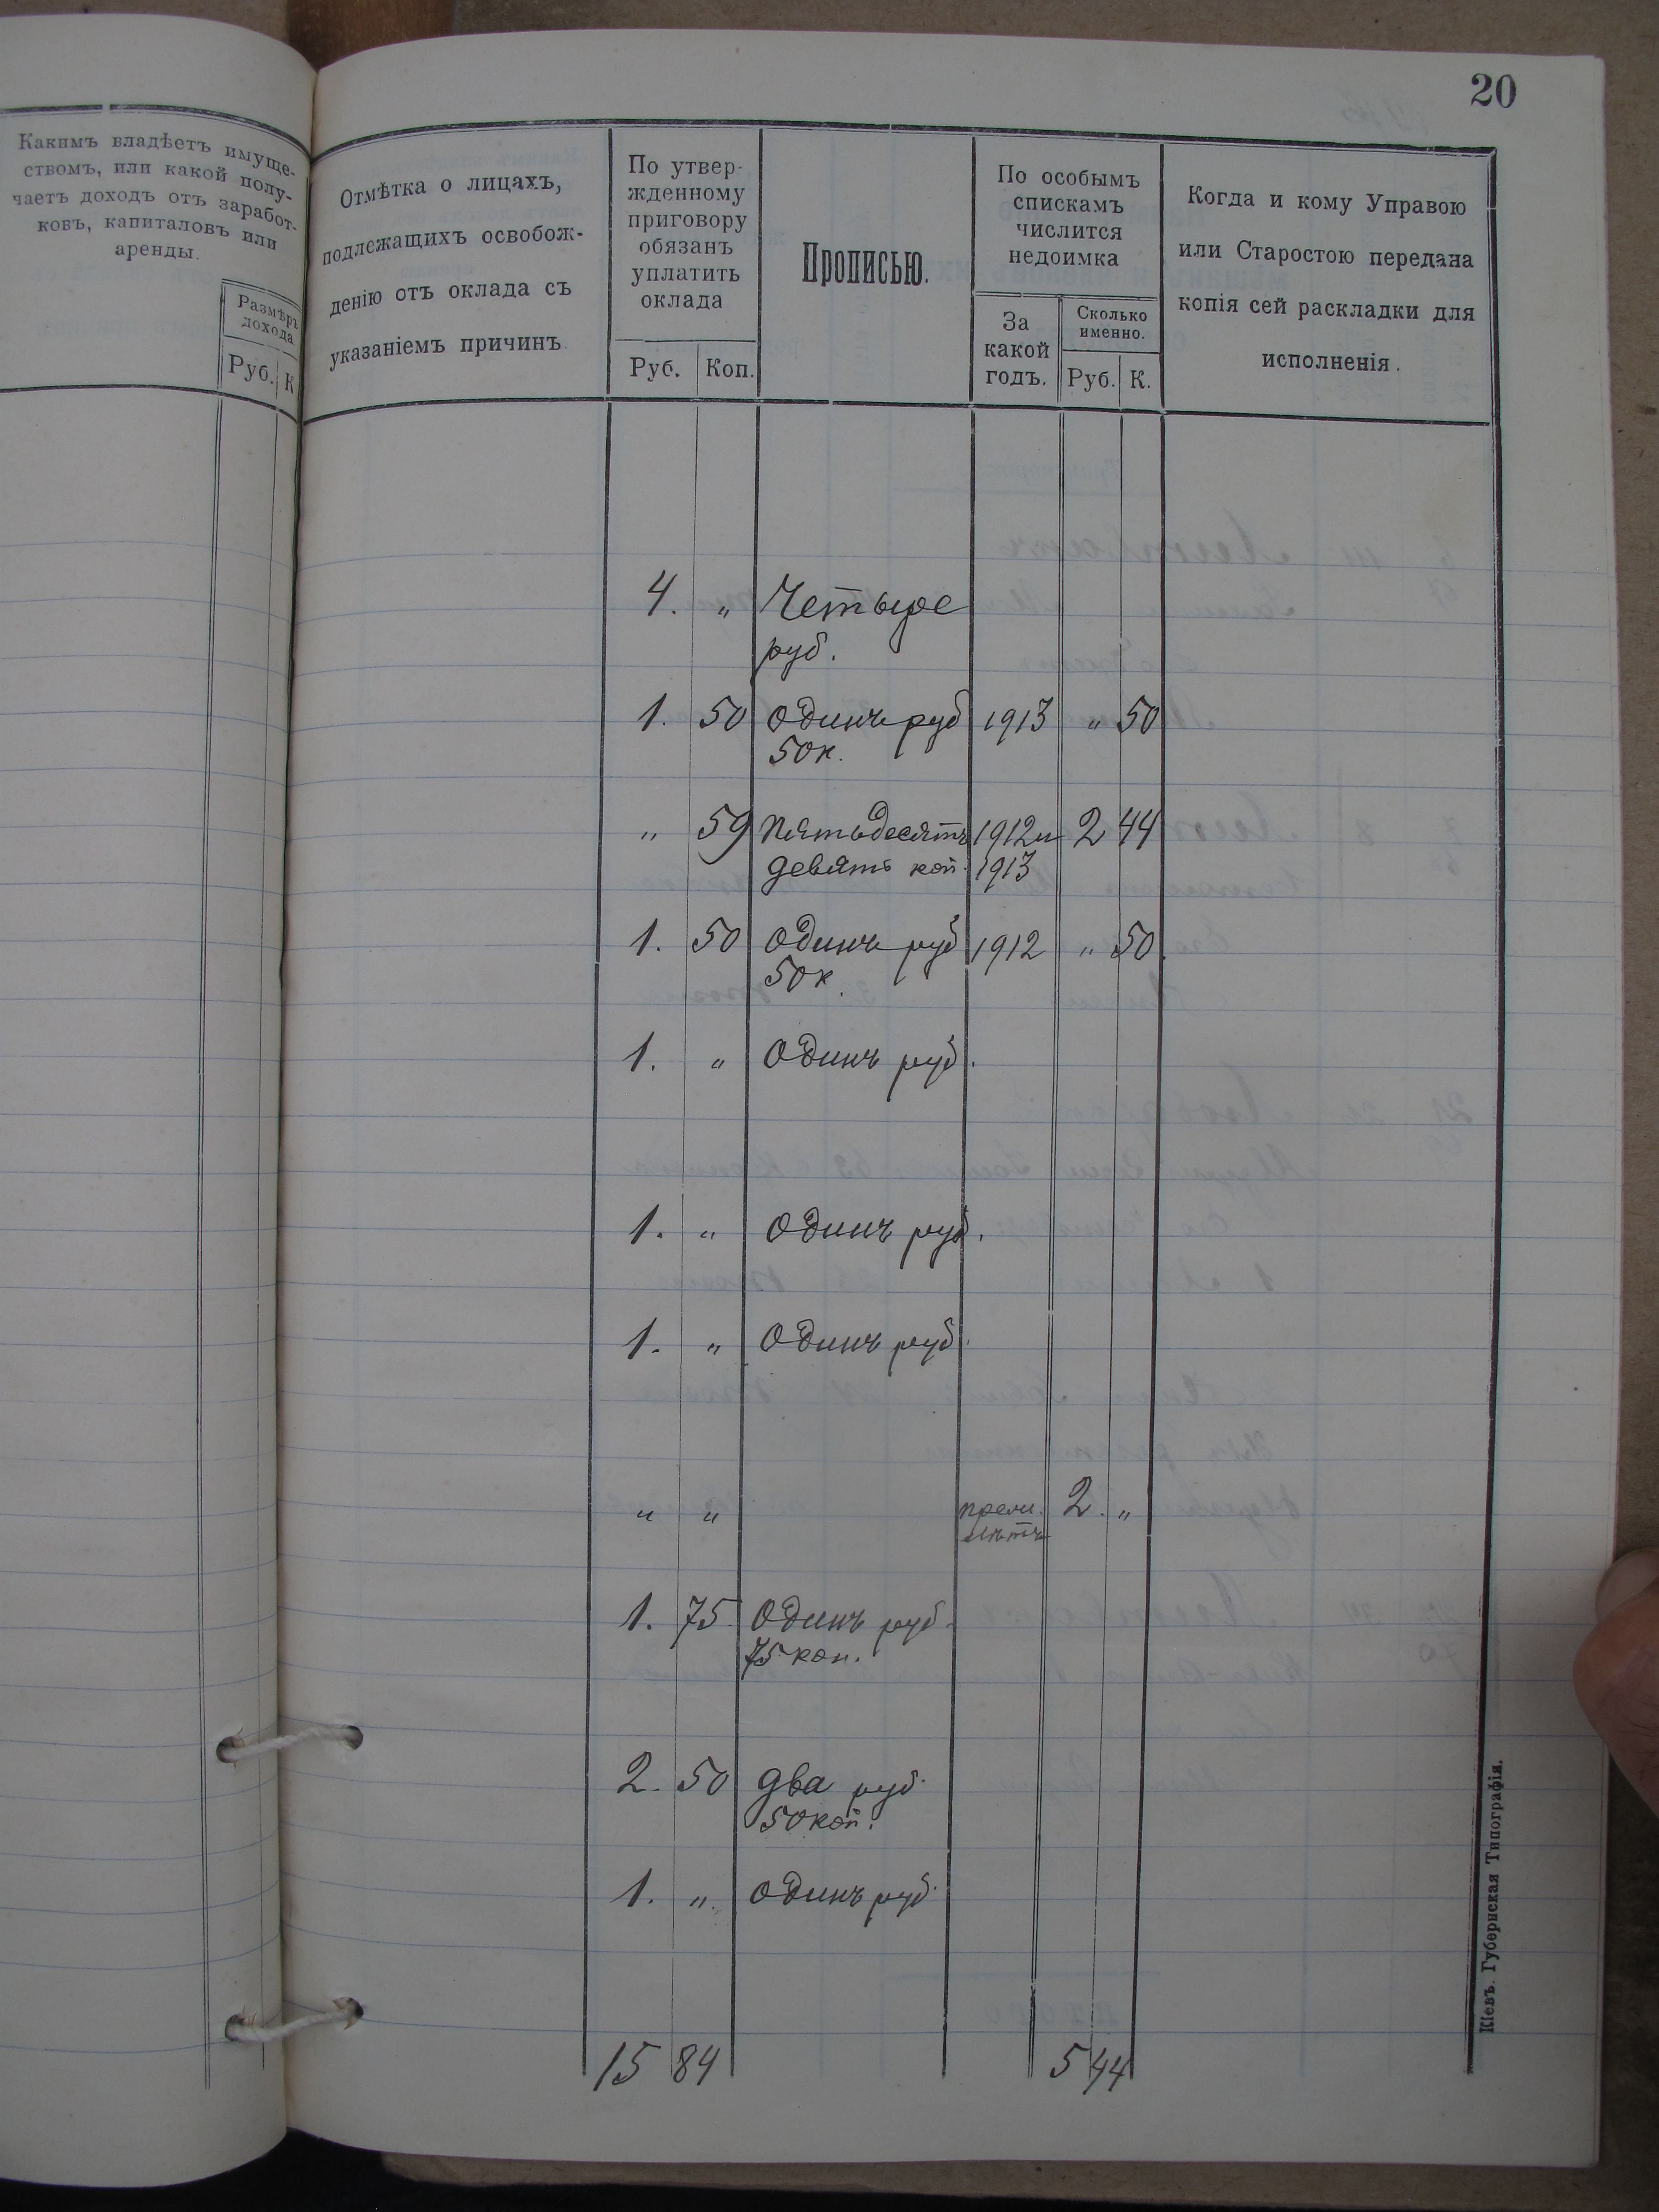 20
Какимъ владѣетъ имуще-
ствомъ, или какой полу-
чаетъ доходъ отъ заработ-
ковъ, капиталовъ или
аренды.
Размѣръ
дохода
Руб. К
Отмѣтка о лицахъ,
подлежащихъ освобож-
денію отъ оклада съ
указаніемъ причинъ
По утвер-
жденному
приговору
обязанъ
уплатить
оклада
Руб. Коп.
Прописью.
По особымъ
спискамъ
числится
недоимка
За
какой
годъ.
Сколько
именно.
Руб. К.
Когда и кому Управою
или Старостою передана
копія сей раскладки для
исполненія.
4. „ Четыре
руб.
1. 50 Одинъ руб 1913 „ 50
50к.
„ 59 Пятьдесятъ 1912и 2 44
девять коп. 1913
1. 50 Одинъ руб 1912 „ 50.
50к.
1. „ Одинъ руб.
1. „ Одинъ руб.
1. „ Одинъ руб.
„ „ 2. „
лѣтъ
1. 75. Одинъ руб.
75 коп.
2. 50 два руб.
50 коп.
1. „ Одинъ руб.
15 84 5 44
Кіевъ. Губернская Типографія.